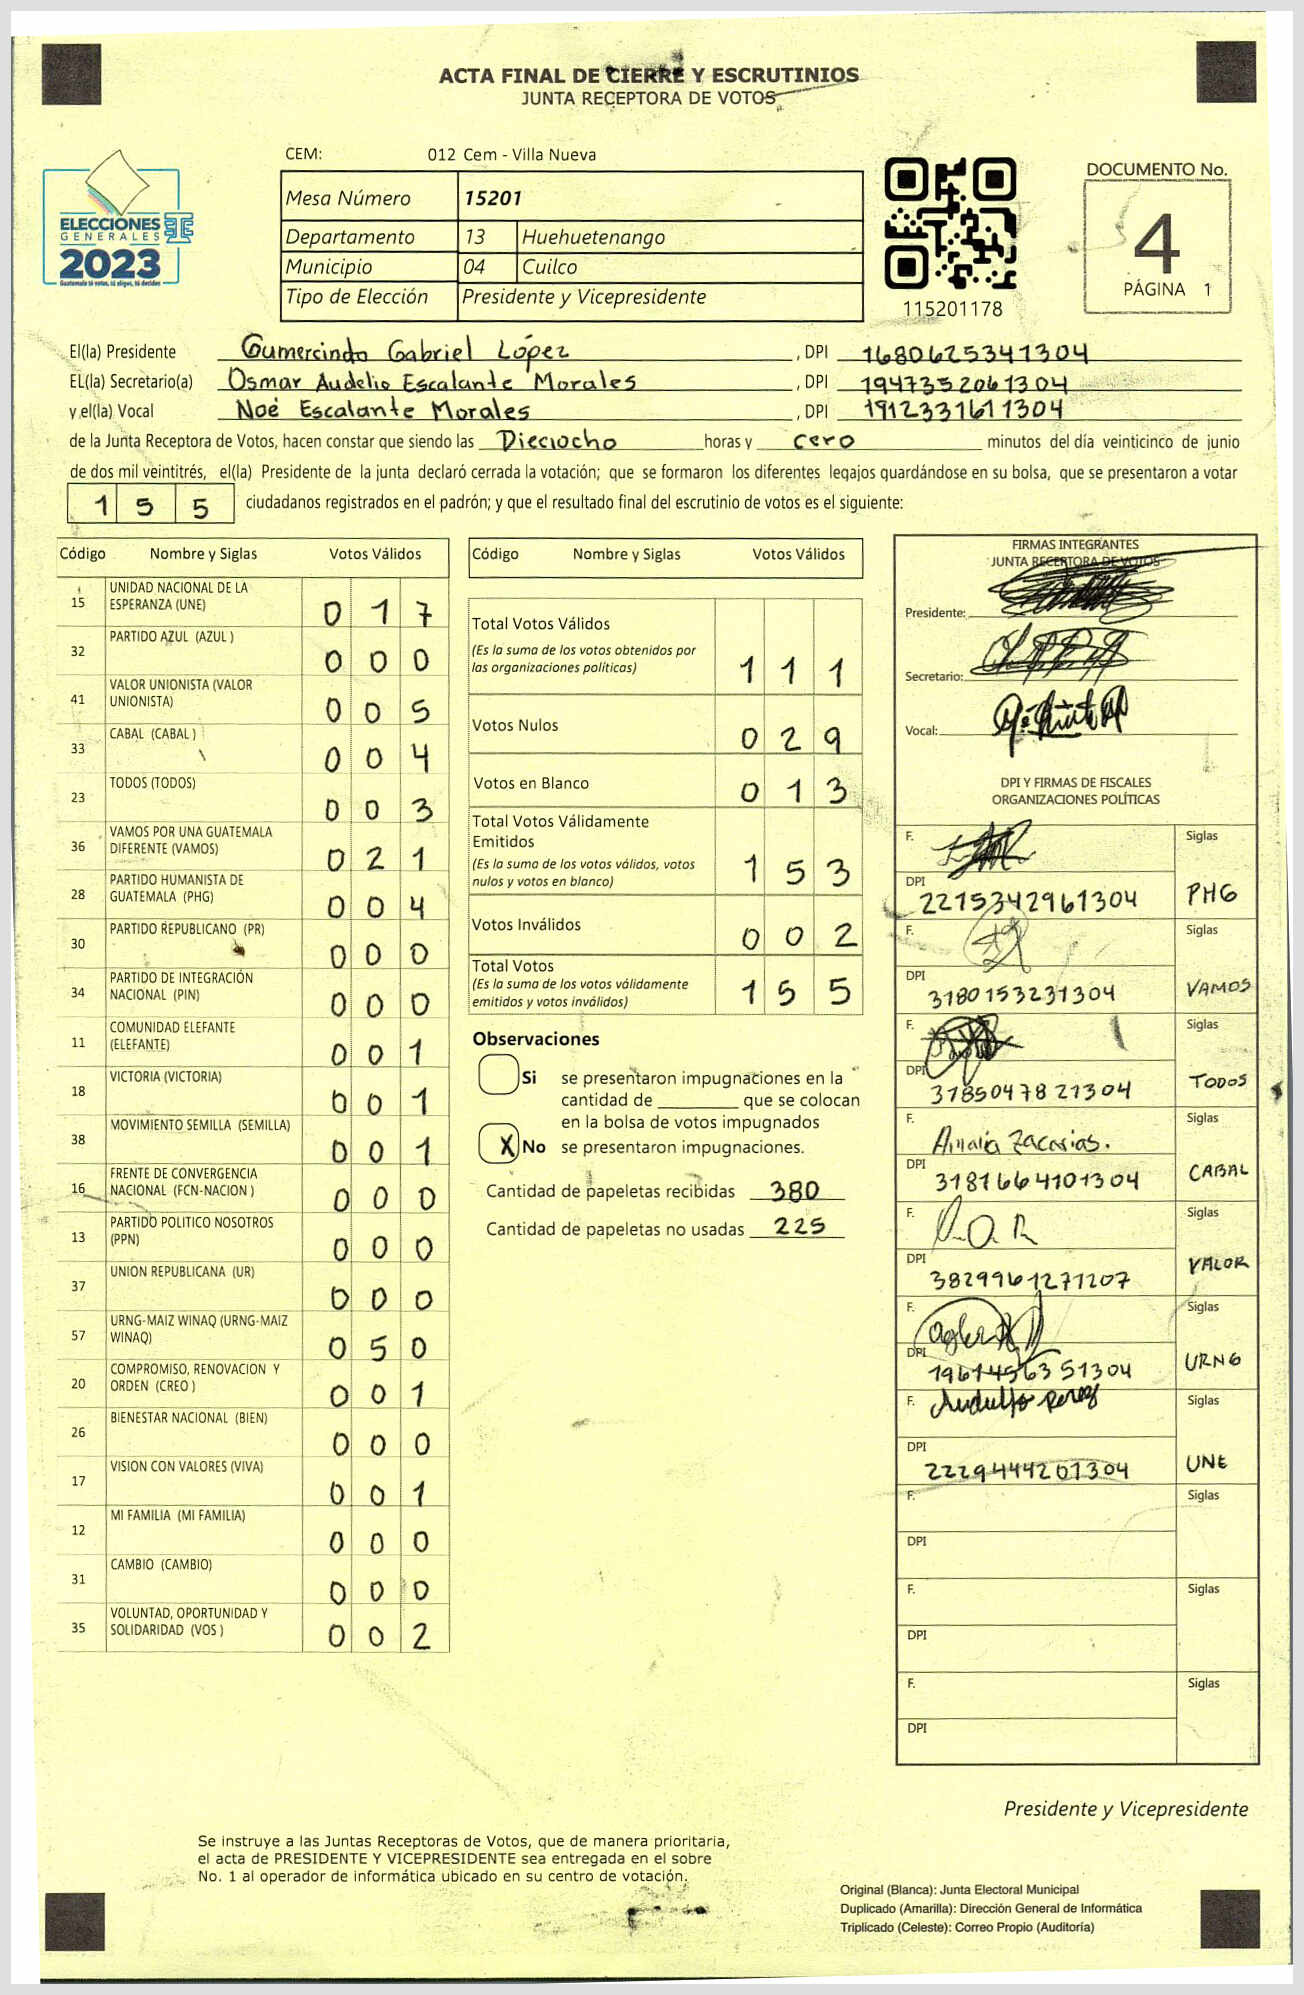 ACTA FINAL DE CIERRE Y ESCRUTINIOS
JUNTA RECEPTORA DE VOTOS
CEM: 012 Cem - Villa Nueva
ELECCIONES
GENERALES
2023
Guatemala tú votas, tú eliges, tú decides
Mesa Número 15201
Departamento 13 Huehuetenango
Municipio 04 Cuilco
Tipo de Elección Presidente y Vicepresidente
115201178
DOCUMENTO No.
4
PÁGINA 1
El(la) Presidente Gumercindo Gabriel López, DPI 1680625341304
EL(la) Secretario(a) Osmar Audelio Escalante Morales, DPI 1947352061304
y el(la) Vocal Noé Escalante Morales, DPI 1912331611304
de la Junta Receptora de Votos, hacen constar que siendo las Dieciocho horas y cero minutos del día veinticinco de junio
de dos mil veintitrés, el(la) Presidente de la junta declaró cerrada la votación; que se formaron los diferentes legajos quardándose en su bolsa, que se presentaron a votar
1 5 5 ciudadanos registrados en el padrón; y que el resultado final del escrutinio de votos es el siguiente:
Código Nombre y Siglas Votos Válidos
15 UNIDAD NACIONAL DE LA ESPERANZA (UNE) 0 1 7
32 PARTIDO AZUL (AZUL ) 0 0 0
41 VALOR UNIONISTA (VALOR UNIONISTA) 0 0 5
33 CABAL (CABAL ) 0 0 4
23 TODOS (TODOS) 0 0 3
36 VAMOS POR UNA GUATEMALA DIFERENTE (VAMOS) 0 2 1
28 PARTIDO HUMANISTA DE GUATEMALA (PHG) 0 0 4
30 PARTIDO REPUBLICANO (PR) 0 0 0
34 PARTIDO DE INTEGRACIÓN NACIONAL (PIN) 0 0 0
11 COMUNIDAD ELEFANTE (ELEFANTE) 0 0 1
18 VICTORIA (VICTORIA) 0 0 1
38 MOVIMIENTO SEMILLA (SEMILLA) 0 0 1
16 FRENTE DE CONVERGENCIA NACIONAL (FCN-NACION ) 0 0 0
13 PARTIDO POLITICO NOSOTROS (PPN) 0 0 0
37 UNION REPUBLICANA (UR) 0 0 0
57 URNG-MAIZ WINAQ (URNG-MAIZ WINAQ) 0 5 0
20 COMPROMISO, RENOVACION Y ORDEN (CREO ) 0 0 1
26 BIENESTAR NACIONAL (BIEN) 0 0 0
17 VISION CON VALORES (VIVA) 0 0 1
12 MI FAMILIA (MI FAMILIA) 0 0 0
31 CAMBIO (CAMBIO) 0 0 0
35 VOLUNTAD, OPORTUNIDAD Y SOLIDARIDAD (VOS ) 0 0 2
Código Nombre y Siglas Votos Válidos
Total Votos Válidos
(Es la suma de los votos obtenidos por
las organizaciones políticas) 1 1 1
Votos Nulos 0 2 9
Votos en Blanco 0 1 3
Total Votos Válidamente
Emitidos
(Es la suma de los votos válidos, votos
nulos y votos en blanco) 1 5 3
Votos Inválidos 0 0 2
Total Votos
(Es la suma de los votos válidamente
emitidos y votos inválidos) 1 5 5
Observaciones
Si se presentaron impugnaciones en la
cantidad de ________ que se colocan
en la bolsa de votos impugnados
X No se presentaron impugnaciones.
Cantidad de papeletas recibidas 380
Cantidad de papeletas no usadas 225
FIRMAS INTEGRANTES
JUNTA RECEPTORA DE VOTOS
Presidente:
Secretario:
Vocal:
DPI Y FIRMAS DE FISCALES
ORGANIZACIONES POLÍTICAS
F. Siglas
DPI 2215342961304 PHG
F. Siglas
DPI 3180153231304 VAMOS
F. Siglas
DPI 3185047821304 TODOS
F. Amalia Zacarias. Siglas
DPI 3181664101304 CABAL
F. Siglas
DPI 3829961271207 VALOR
F. Siglas
DPI 1961456351304 URNG
F. Siglas
DPI 2229444201304 UNE
F. Siglas
DPI
F. Siglas
DPI
F. Siglas
DPI
Presidente y Vicepresidente
Se instruye a las Juntas Receptoras de Votos, que de manera prioritaria,
el acta de PRESIDENTE Y VICEPRESIDENTE sea entregada en el sobre
No. 1 al operador de informática ubicado en su centro de votación.
Original (Blanca): Junta Electoral Municipal
Duplicado (Amarilla): Dirección General de Informática
Triplicado (Celeste): Correo Propio (Auditoría)